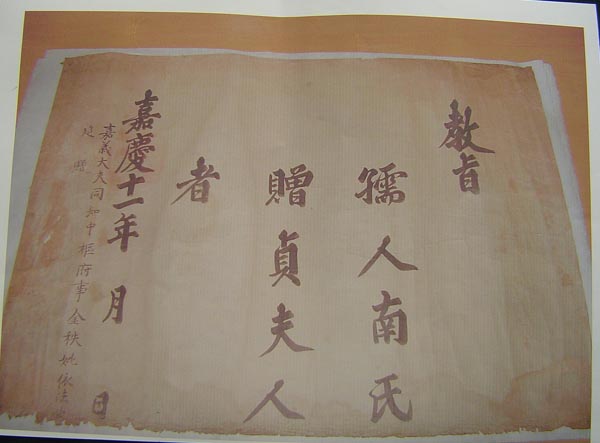 教旨
孺人南氏
贈貞夫人
者
嘉慶十一年 月 日
嘉義大夫同知中樞府事金秩妣依法